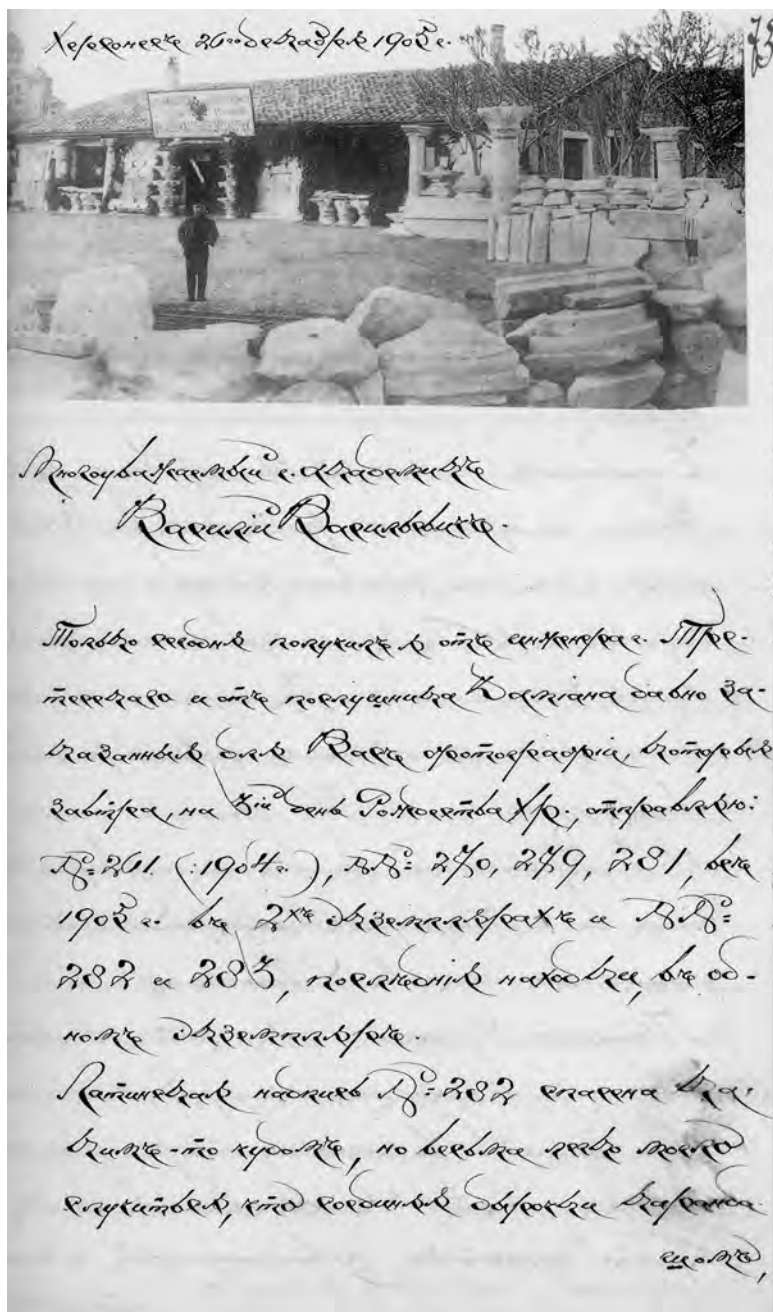 Херсонесъ 26го декабря 1905 г.
73
Многоуважаемый г. академикъ
Василій Васильевичъ.
Только сегодня получилъ я отъ инженера г.
и отъ послушника Даміана давно за-
казанныя для Васъ фотографій, которыя
завтра, на 3ій день Рождества Хр., отправляю:
№ 261 (:1904 г.), №№ 270, 279, 281, всѣ
1905 г. въ 2хъ экземплярахъ и №№
282 и 283, послѣднія находки, въ од-
номъ экземплярѣ.
Латинская надпись № 282 спасена ка-
кимъ-то чудомъ, но весьма легко могло
случиться, что соединяя дырочки каранда
шомъ,